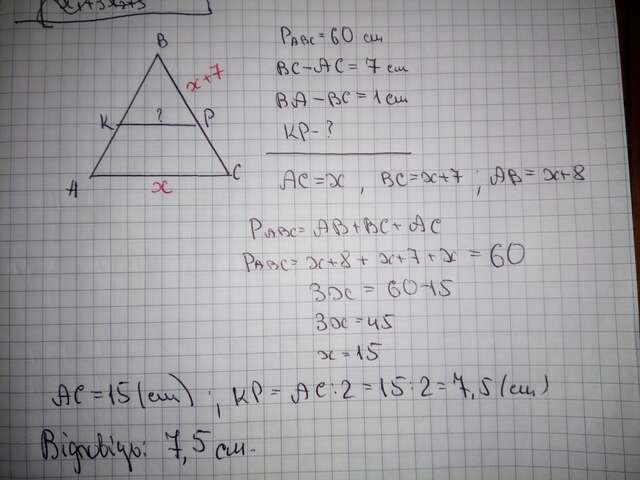 B
K
P
?
x+7
A
x
C
P ABC = 60 см
BC - AC = 7 см
BA - BC = 1 см
KP - ?
AC = x, BC = x+7; AB = x+8
P ABC = AB + BC + AC
P ABC = x+8 + x+7 + x = 60
3x = 60-15
3x = 45
x = 15
AC = 15 (см); KP = AC : 2 = 15 : 2 = 7,5 (см)
Відповідь: 7,5 см.